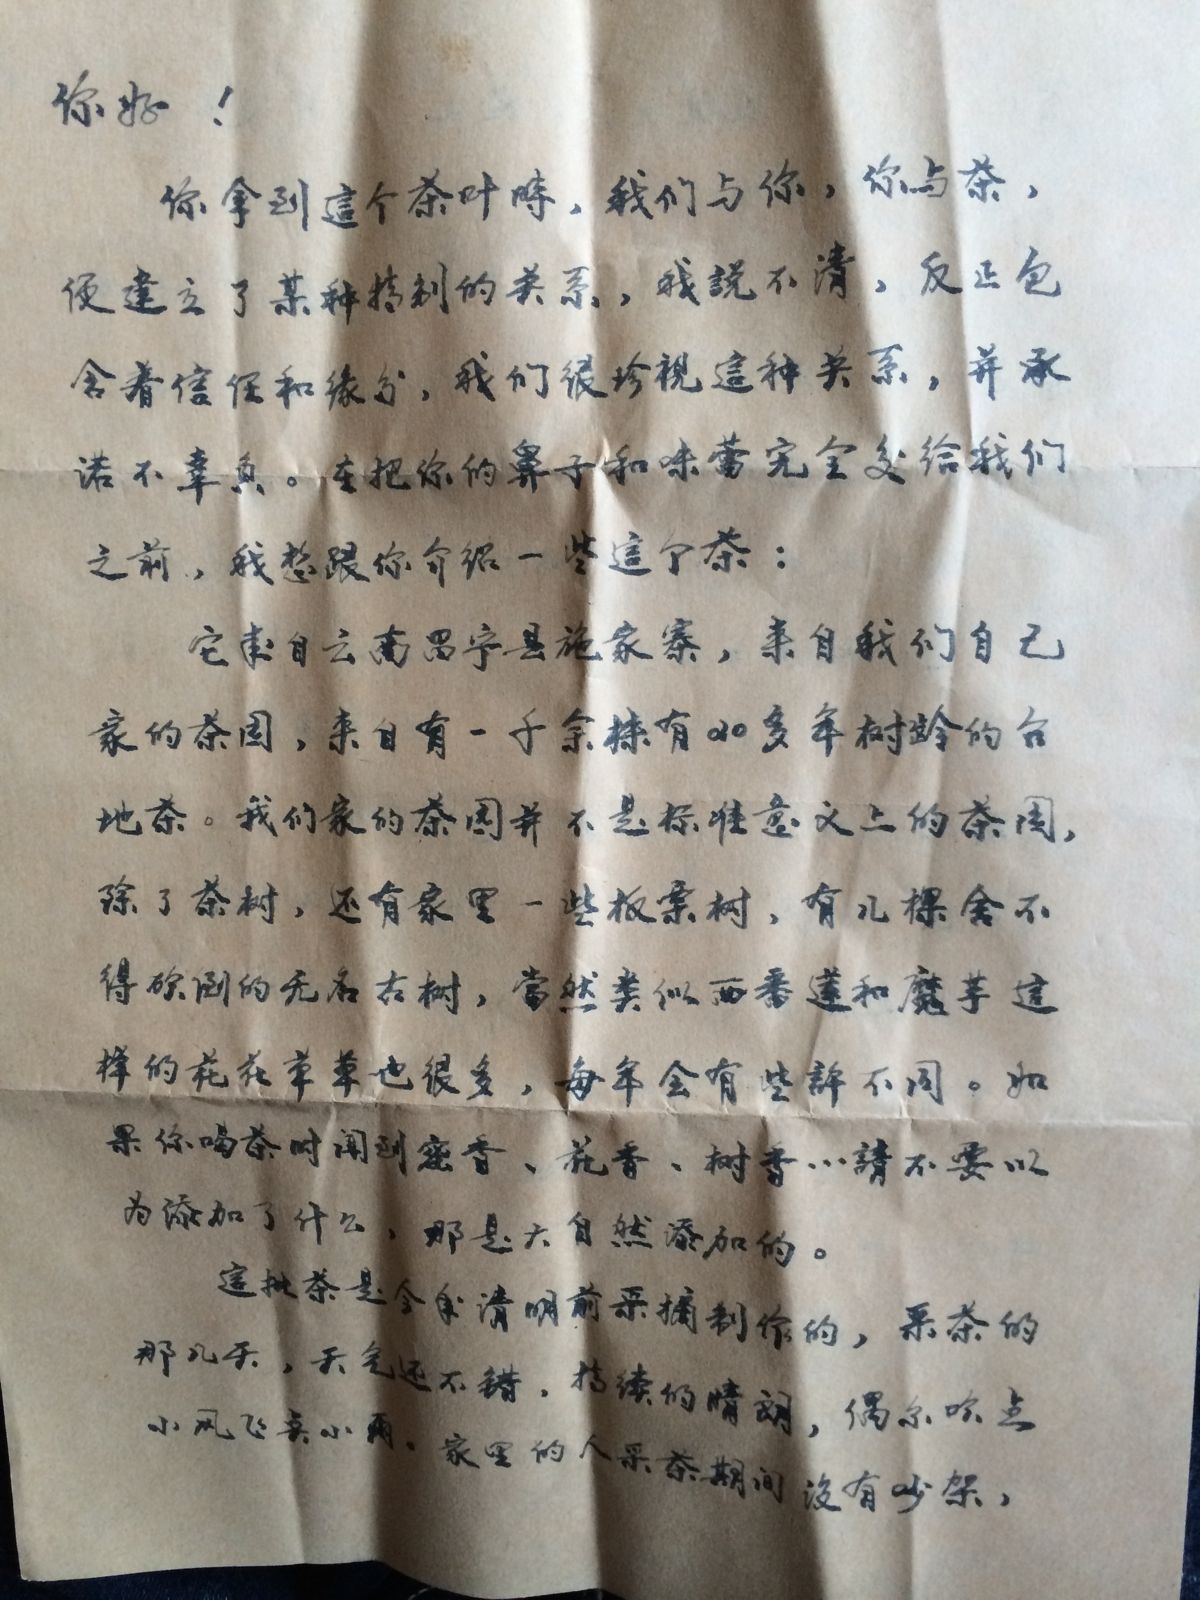 你好！
你拿到這个茶叶時，我们与你，你与茶，
便建立了某种特别的关系，我説不清，反正包
含着信任和缘分，我们很珍視這种关系，并承
诺不辜負。在把你的鼻子和味蕾完全交给我们
之前，我想跟你介绍一些這个茶：
它來自云南昌宁县施家寨，来自我们自己
家的茶园，来自有一千余棵有20多年树龄的台
地茶。我们家的茶园并不是标准意义上的茶园，
除了茶树，还有家里一些板栗树，有几棵舍不
得砍倒的无名古树，當然类似西番蓮和魔芋這
样的花花草草也很多，每年会有些許不同。如
果你喝茶时闻到蜜香、花香、树香…請不要以
为添加了什么，那是大自然添加的。
這批茶是今年清明前采摘制作的，采茶的
那几天，天气还不错，持续的晴朗，偶尔吹点
小风飞点小雨。家里的人采茶期间没有吵架，